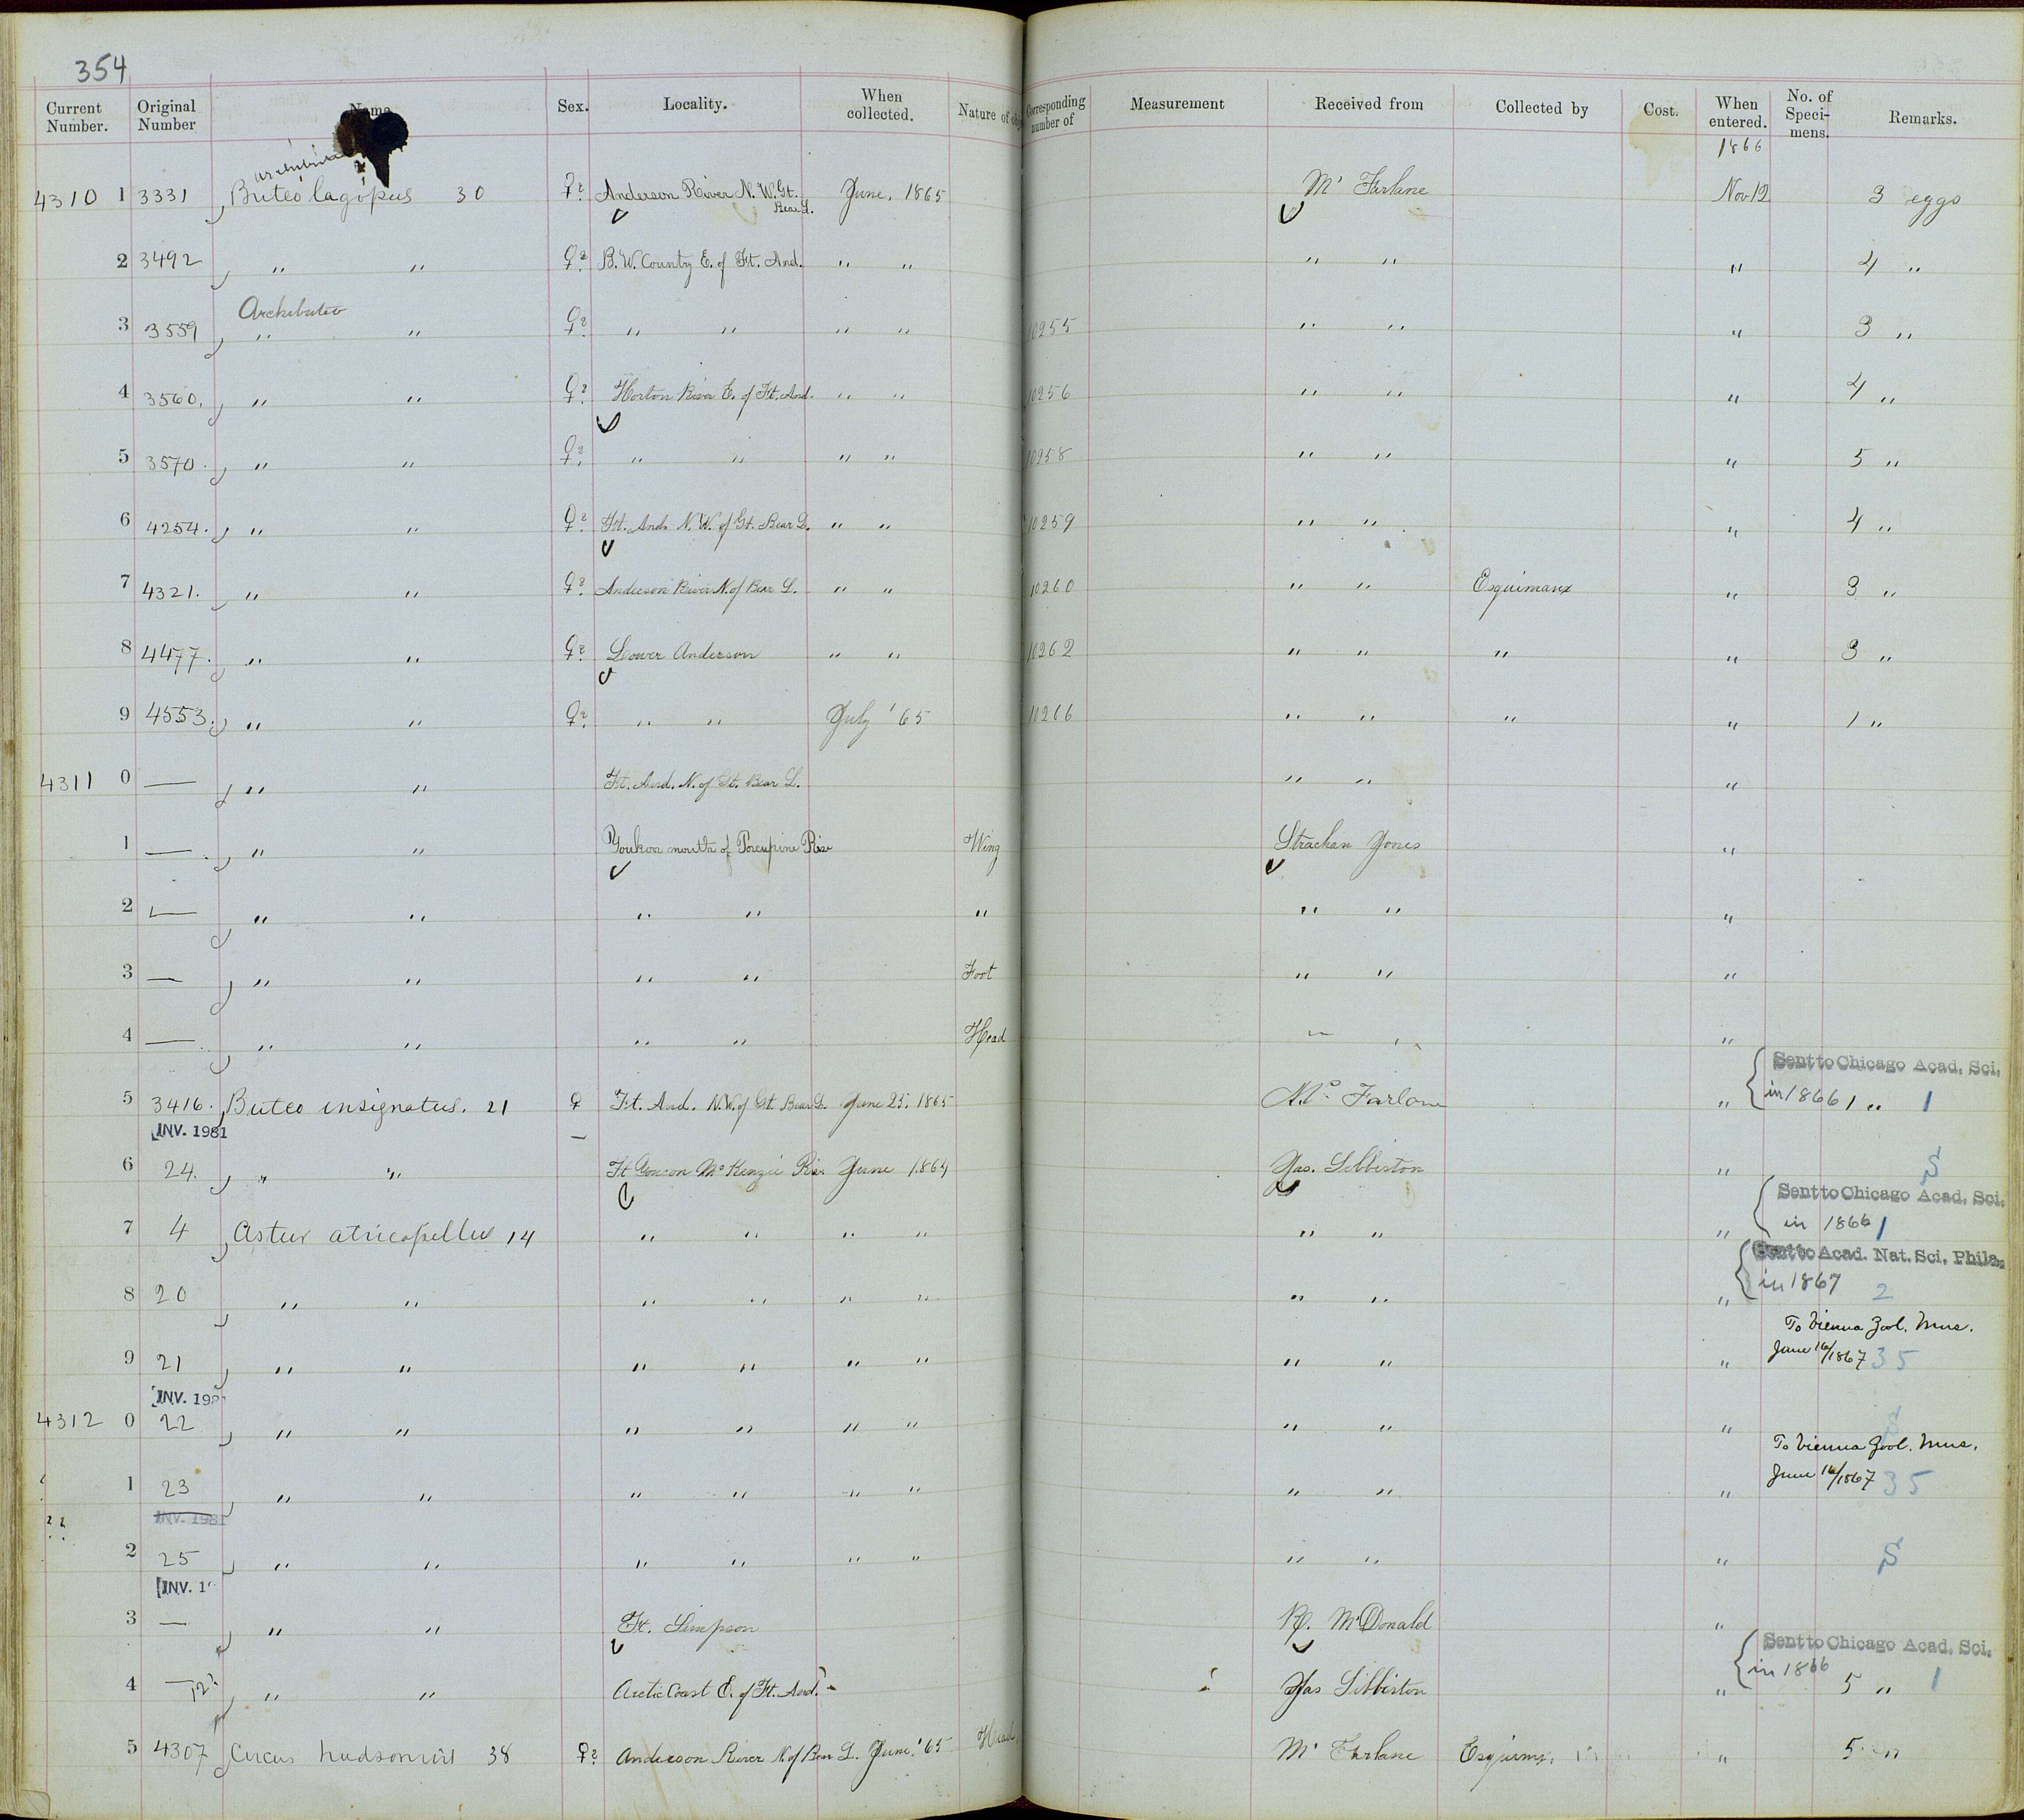 354
Current Number. Original Number Name Sex. Locality. When collected. Nature of Corresponding number of Measurement Received from Collected by Cost. When entered. No. of Specimens. Remarks.
1866
4310 1 3331 Buteo lagopus 30 ♀? Anderson River N.W. Gt. Bear L. June, 1865 Mc Farlane Nov 12 3 eggs
2 3492 " " ♀? B.W. Country E. of Ft. And. " " " " " 4 "
Archibuteo
3 3559 " " ♀? " " " " 10255 " " " 3 "
4 3560. " " ♀? Horton River E. of Ft. And. " " 10256 " " " 4 "
5 3570. " " ♀? " " " " 10258 " " " 5 "
6 4254. " " ♀? Ft. And. N.W. of Gt. Bear L. " " 10259 " " " 4 "
7 4321. " " ♀? Anderson River N. of Bear L. " " 10260 " " Esquimaux " 3 "
8 4477. " " ♀? Lower Anderson " " 10262 " " " " 3 "
9 4553. " " ♀? " " July '65 10266 " " " " 1 "
4311 0 — " " Ft. And. N. of Gt. Bear L. " " "
1 — " " Youkon mouth of Porcupine River Wing Strachan Jones "
2 — " " " " " " " "
3 — " " " " Foot " " "
4 — " " " " Head " " "
Sent to Chicago Acad. Sci.
5 3416. Buteo insignatus. 21 ♀ Ft. And. N.W. of Gt. Bear L. June 25, 1865 Mc Farlane " in 1866 1 " 1
INV. 1981
6 24. " " Ft McKenzie River June 1864 Jas. Sibbiston " S
Sent to Chicago Acad. Sci.
7 4 Astur atricapillus 14 " " " " " " " in 1866 1
Sent to Acad. Nat. Sci. Phila.
in 1867
8 20 " " " " " " " " " 2
To Vienna Zool. Mus.
9 21 " " " " " " " " " June 16/1867 35
INV. 198
4312 0 22 " " " " " " " " " S
To Vienna Zool. Mus.
1 23 " " " " " " " " " June 16/1867 35
INV. 1981
2 25 " " " " " " " " " S
INV. 1
3 — " " Ft. Simpson R. McDonald "
Sent to Chicago Acad. Sci.
in 1866
4 " " Arctic Coast E. of Ft. And. Jas Sibbiston " 5 " 1
5 4307 Circus hudsonius 38 ♀? Anderson River N. of Bear L. June, '65 Head Mc Farlane Esquimx. " 5 "